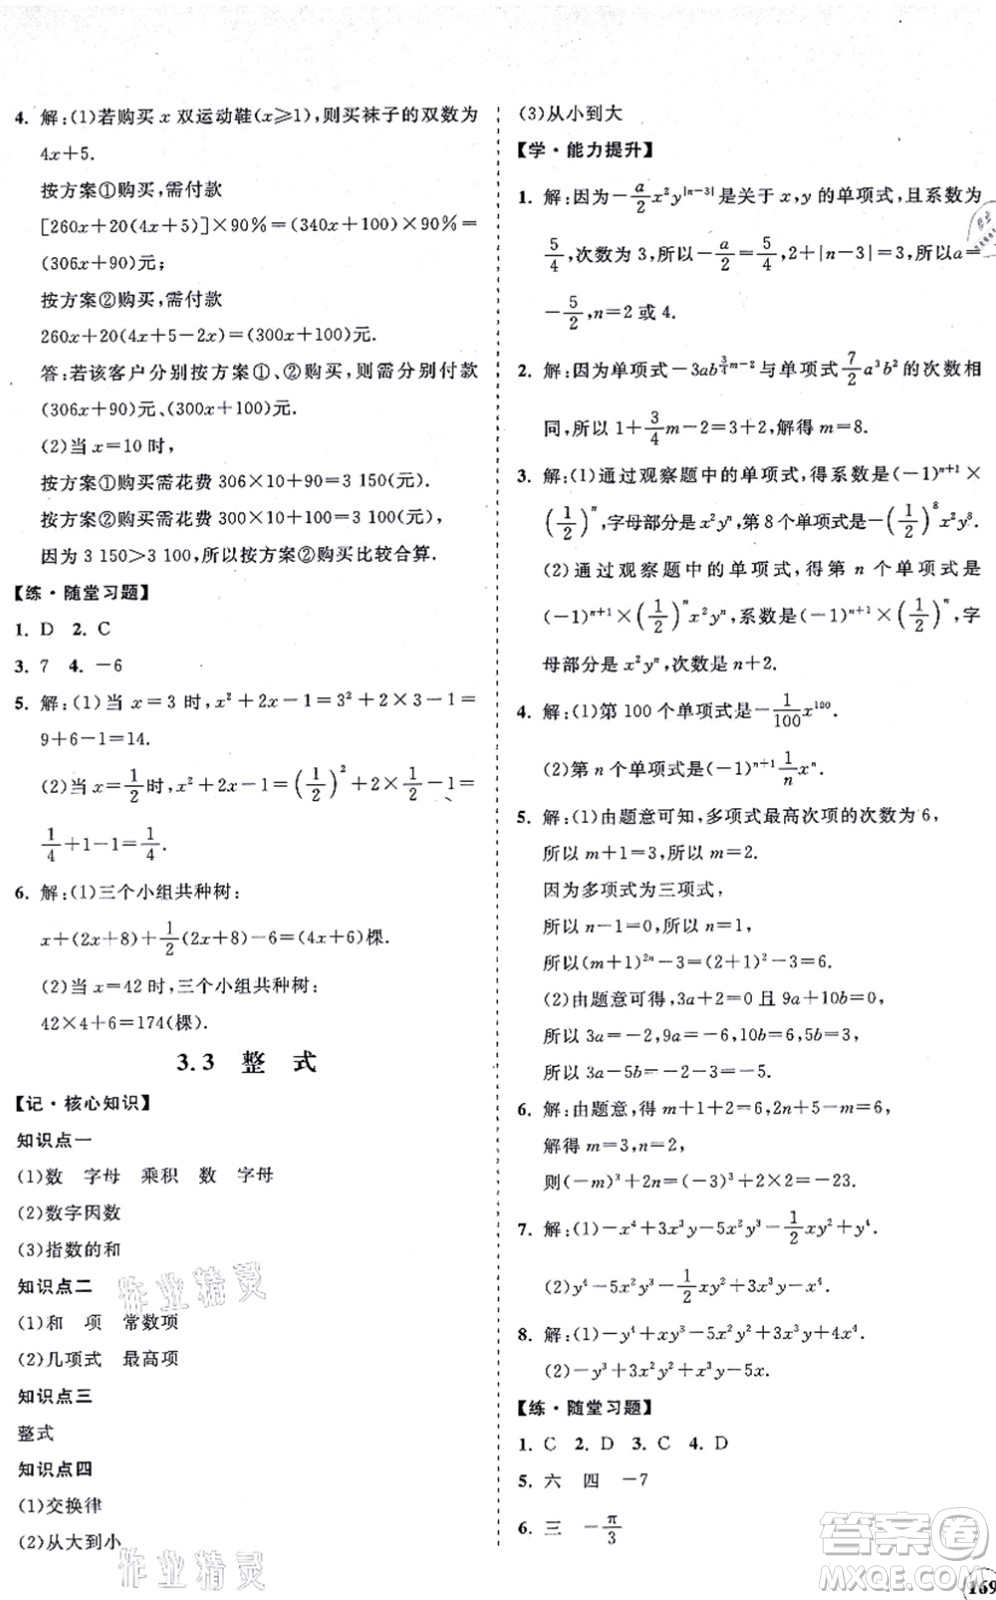 4. 解:(1)若购买 x 双运动鞋(x≥1),则买袜子的双数为
4x+5.
按方案①购买,需付款
[260x+20(4x+5)]×90%=(340x+100)×90%=
(306x+90)元;
按方案②购买,需付款
260x+20(4x+5-2x)=(300x+100)元.
答:若该客户分别按方案①、②购买,需付款
(306x+90)元、(300x+100)元.
(2)当 x=10 时,
按方案①购买需花费 306×10+90=3 150(元).
按方案②购买需花费 300×10+100=3 100(元),
因为 3 150>3 100,所以按方案②购买比较合算.
【练·随堂习题】
1. D 2. C
3. 7 4. -6
5. 解:(1)当 x=3 时,x²+2x-1=3²+2×3-1=
9+6-1=14.
(2)当 x=1/2 时,x²+2x-1=(1/2)²+2×1/2-1=
1/4+1-1=1/4.
6. 解:(1)三个小组共种树:
x+(2x+8)+1/2(2x+8)-6=(4x+6)棵.
(2)当 x=42 时,三个小组共种树:
42×4+6=174(棵).
3.3 整 式
【记·核心知识】
知识点一
(1)数 字母 乘积 数 字母
(2)数字因数
(3)指数的和
知识点二
(1)和 项 常数项
(2)几项式 最高项
知识点三
整式
知识点四
(1)交换律
(2)从大到小
(3)从小到大
【学·能力提升】
1. 解:因为-a/2 x²y^|n-3|是关于 x,y 的单项式,且系数为
5/4,次数为 3,所以-a/2=5/4,2+|n-3|=3,所以a=
-5/2,n=2 或 4.
2. 解:因为单项式-3ab^(3/4 m-2)与单项式 7/2 a³b²的次数相
同,所以 1+3/4 m-2=3+2,解得 m=8.
3. 解:(1)通过观察题中的单项式,得系数是(-1)ⁿ⁺¹×
(1/2)ⁿ,字母部分是 x²yⁿ,第 8 个单项式是-(1/2)⁸x²y⁸.
(2)通过观察题中的单项式,得第 n 个单项式是
(-1)ⁿ⁺¹×(1/2)ⁿx²yⁿ,系数是(-1)ⁿ⁺¹×(1/2)ⁿ,字
母部分是 x²yⁿ,次数是 n+2.
4. 解:(1)第 100 个单项式是-1/100 x¹⁰⁰.
(2)第 n 个单项式是(-1)ⁿ⁺¹ 1/n xⁿ.
5. 解:(1)由题意可知,多项式最高次项的次数为 6,
所以 m+1=3,所以 m=2.
因为多项式为三项式,
所以 n-1=0,所以 n=1,
所以(m+1)²ⁿ-3=(2+1)²-3=6.
(2)由题意可得,3a+2=0 且 9a+10b=0,
所以 3a=-2,9a=-6,10b=6,5b=3,
所以 3a-5b=-2-3=-5.
6. 解:由题意,得 m+1+2=6,2n+5-m=6,
解得 m=3,n=2.
则(-m)³+2n=(-3)³+2×2=-23.
7. 解:(1)-x⁴+3x³y-5x²y³-1/2xy²+y⁴.
(2)y⁴-5x²y³-1/2xy²+3x³y-x⁴.
8. 解:(1)-y⁴+xy³-5x²y²+3x³y+2x⁴.
(2)-y³+3x²y²+x³y-5x.
【练·随堂习题】
1. C 2. D 3. C 4. D
5. 六 四 -7
6. 三 -π/3
作业精灵
作业精灵
答案卷
MXQE.COM
169